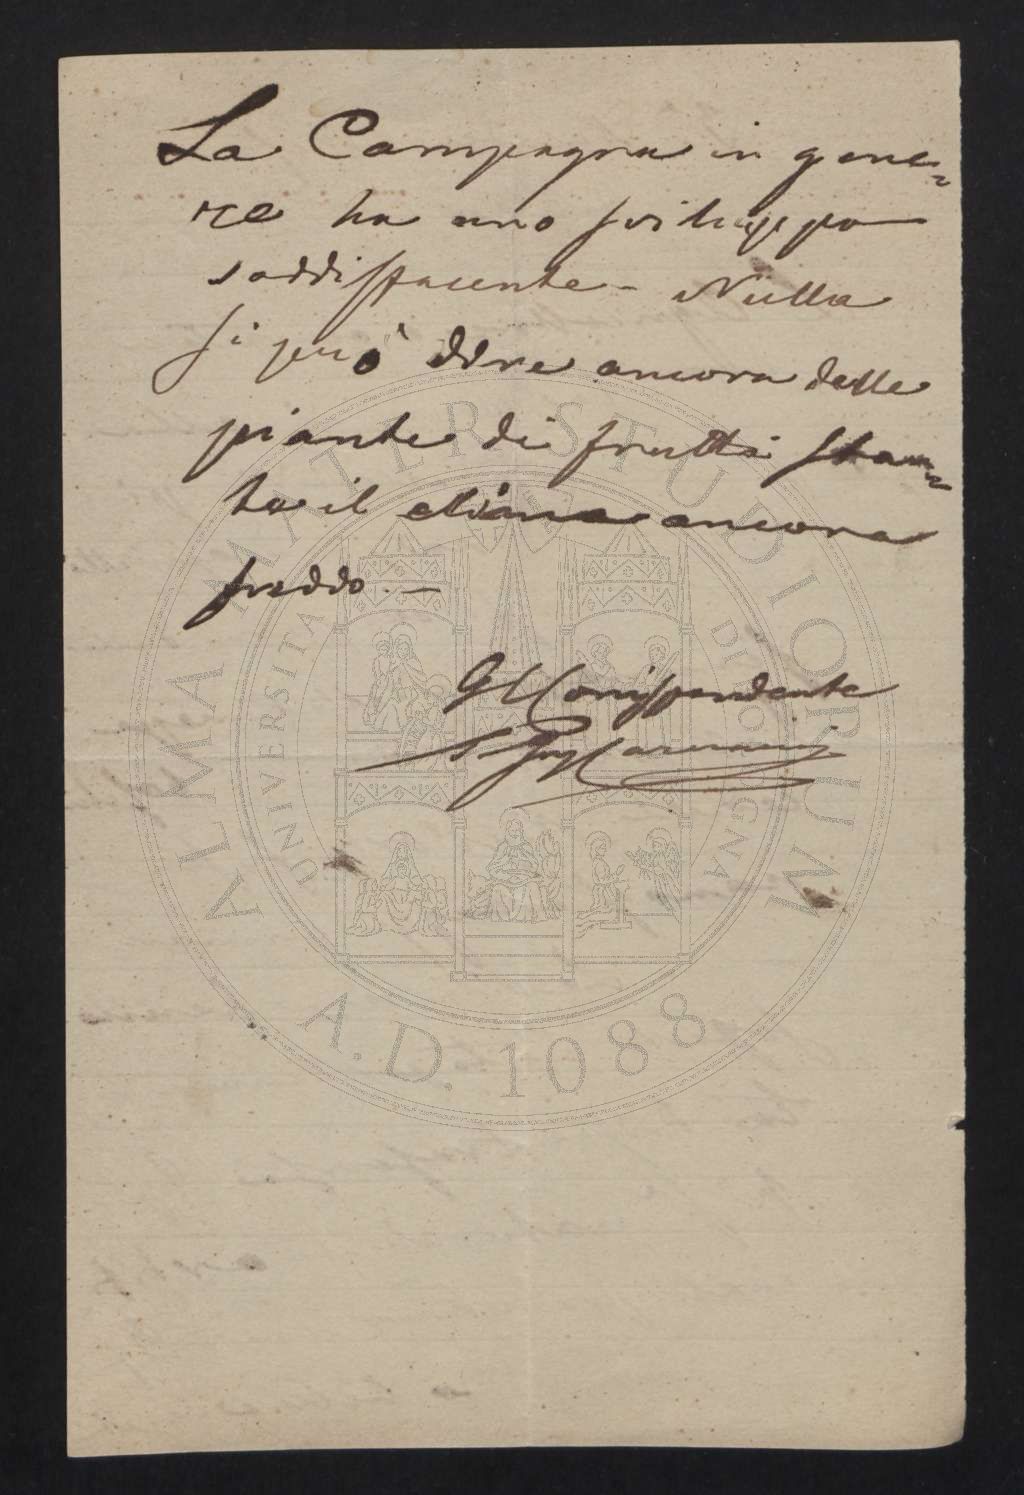 La Campagna in gene-
rale ha uno sviluppo
soddisfacente - Nulla
si può dire ancora delle
piante di frutta stan-
te il clima ancora
freddo. -
Il Corrispondente
ALMA MATER STUDIORUM
UNIVERSITA DI BOLOGNA
A.D. 1088